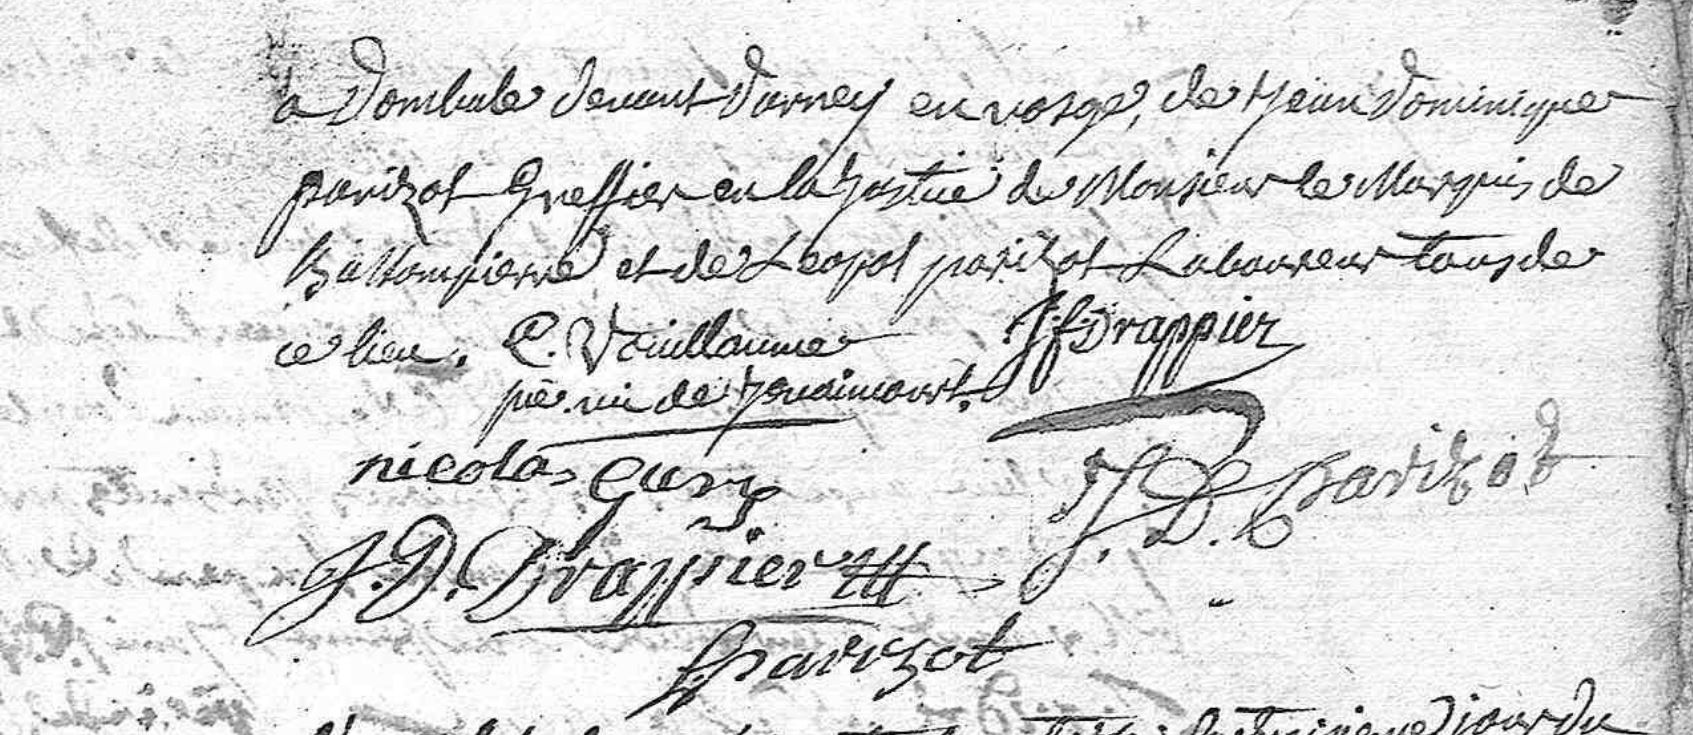 a Dombale devant Darney en vosge, de Jean Dominique
parizot Greffier en la Justice de Monsieur le Marquis de
Bassompierre et de Leopol parizot Laboureur tous de
ce lieu. C. Vuillaume J f Drappier
pre. vic de Jouaincourt.
nicolas Gury
J. D. Parizot
J. D. Drappier
L. parizot
jour du